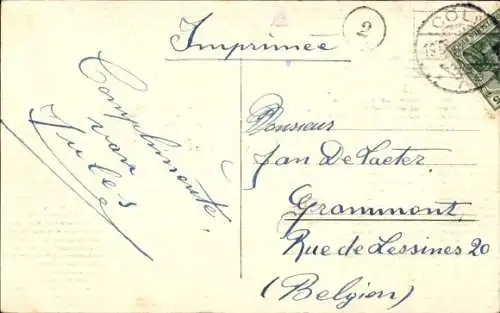 Imprimée
2
CÖL
19
Complimente
van
Jules
Monsieur
Jan De Laeter.
Grammont,
Rue de Lessines 20
(Belgien)